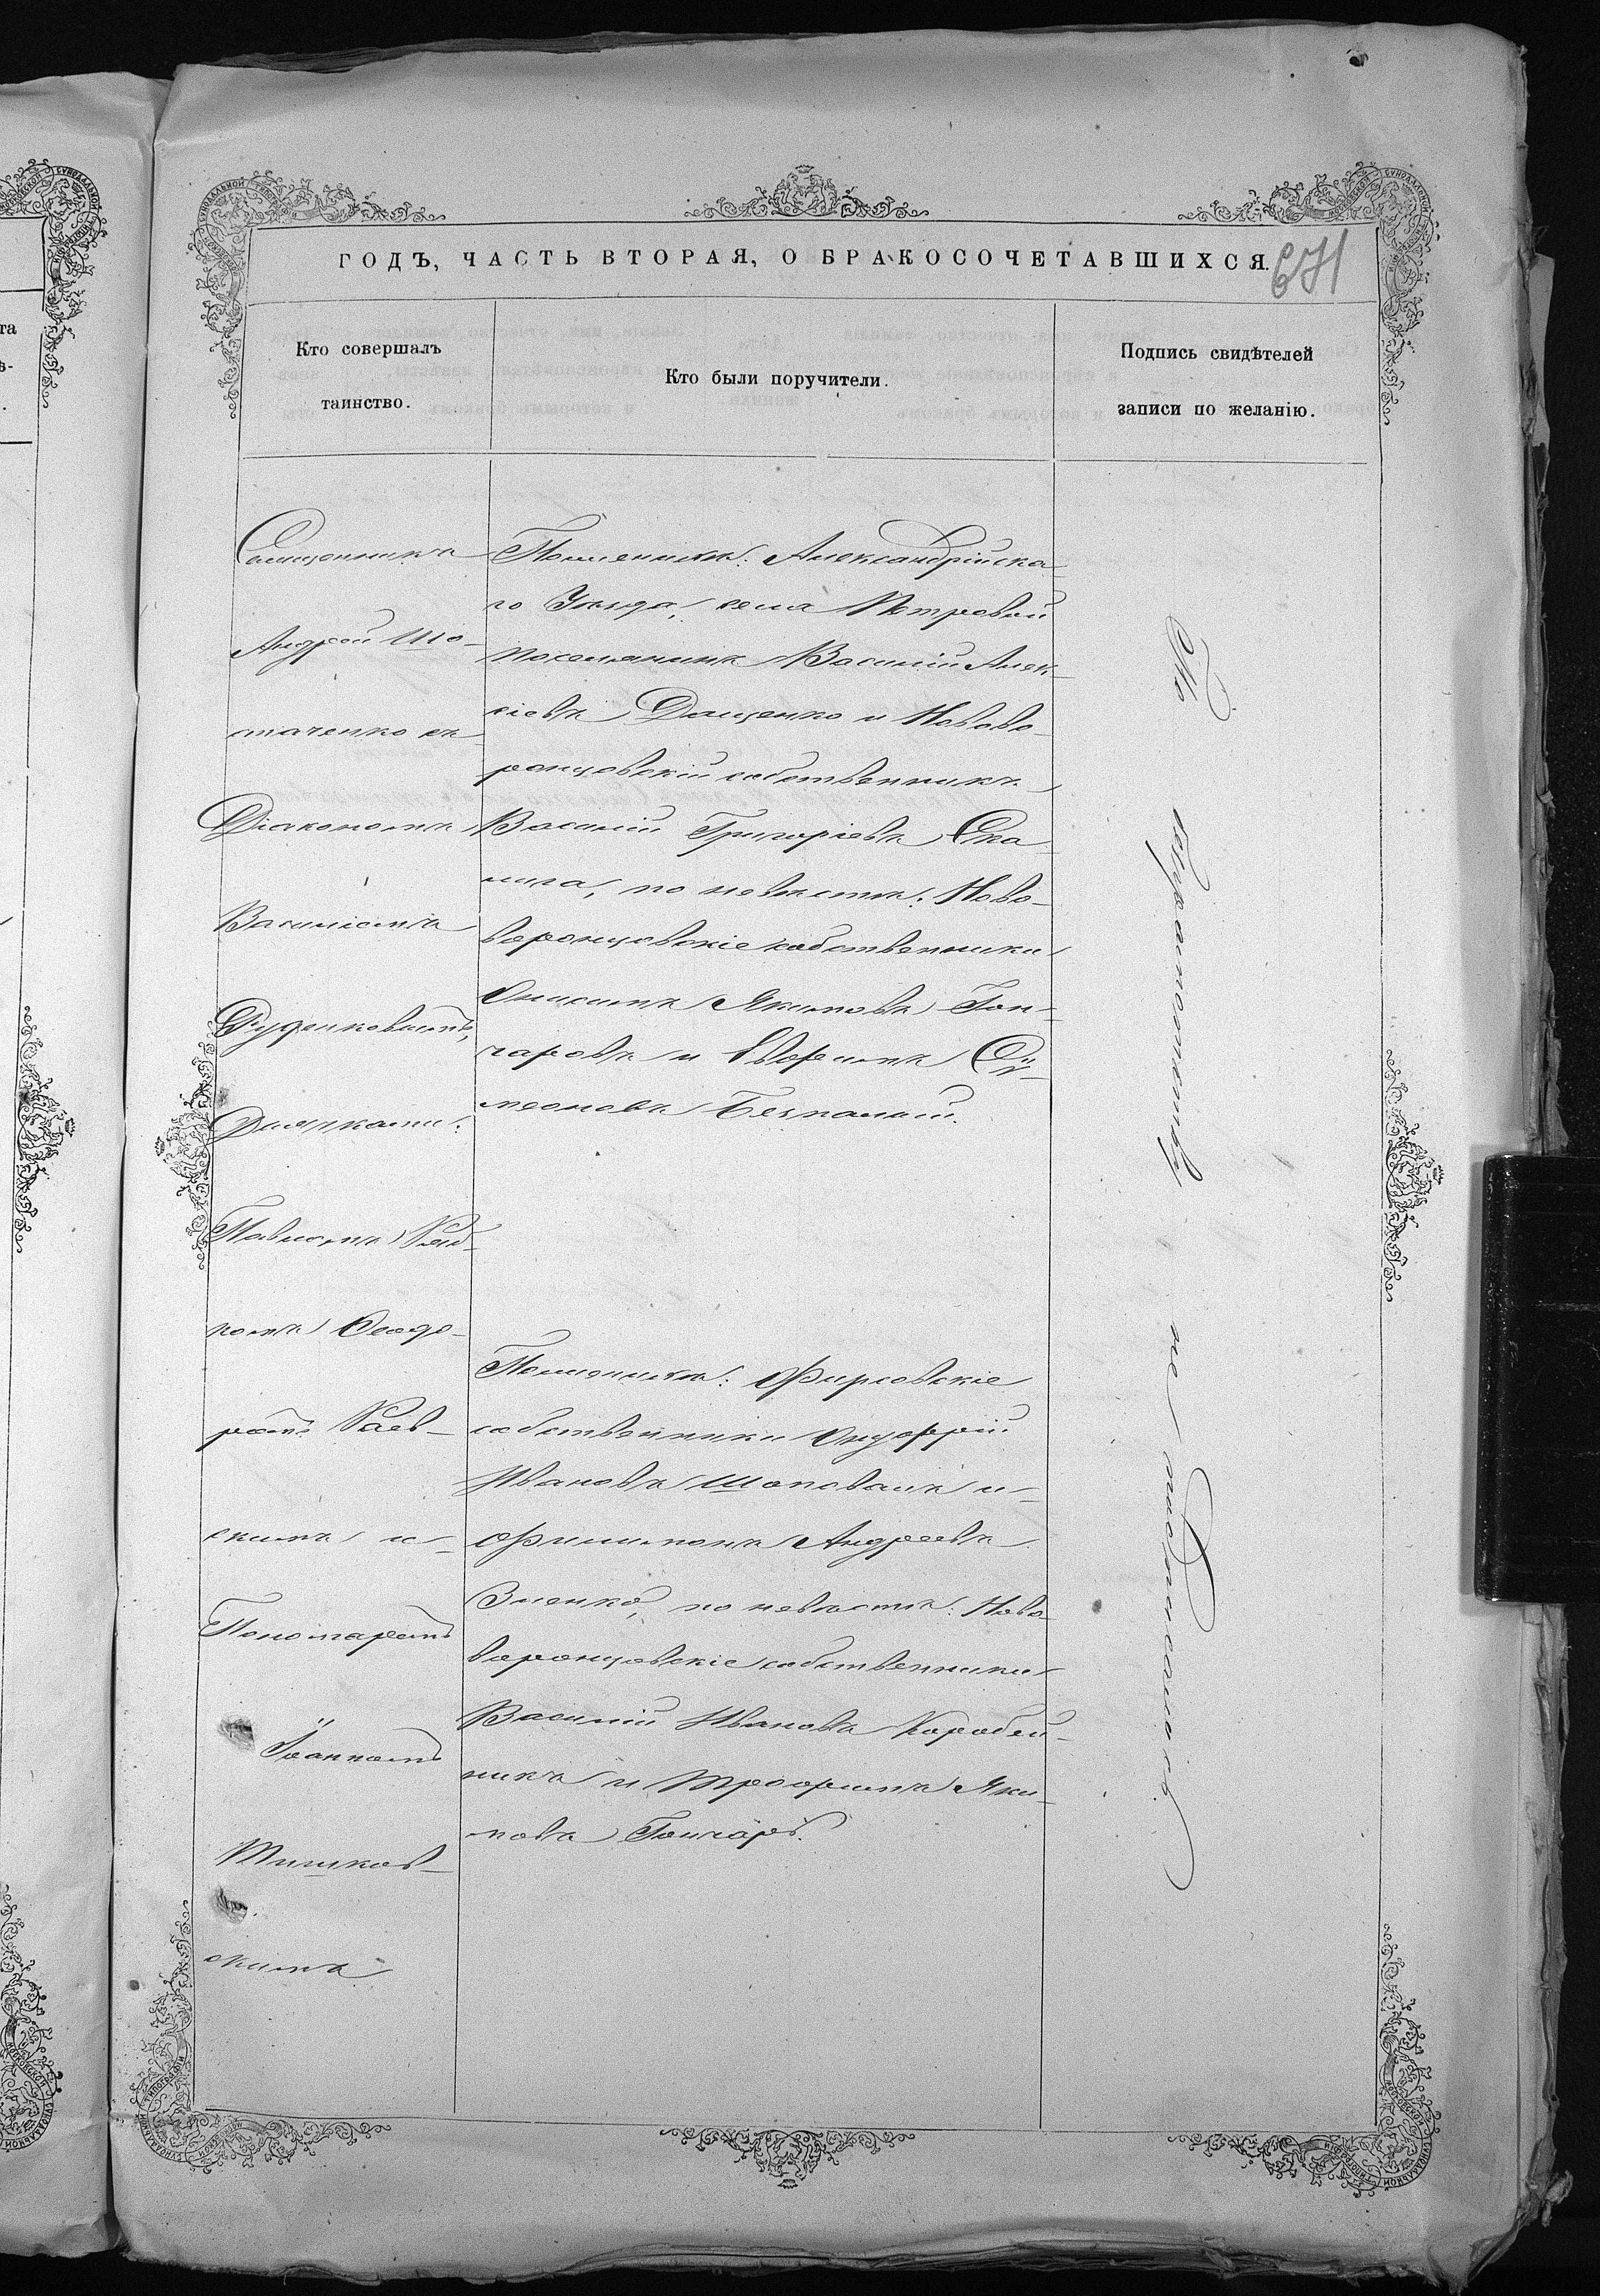 ГОДЪ, ЧАСТЬ ВТОРАЯ, О БРАКОСОЧЕТАВШИХСЯ.
671
Кто совершалъ
таинство.
Кто были поручители.
Подпись свидѣтелей
записи по желанію.
Священникъ
Андрей Шо-
стаченко съ
Діакономъ
Василіемъ
Рудиковымъ,
Дьячками:
Павломъ
комъ Ѳеодо-
ромъ Раев-
скимъ и
Пономаремъ
Іоанномъ
Тишков-
скимъ
По женихѣ: Александрійска-
го Уѣзда, села Петровой
поселянинъ Василій Алек-
сіевъ Даценко и Ново-
ронцовскій собственникъ
Василій Григоріевъ Ска-
лига, по невѣстѣ: Ново-
воронцовскіе собственники
Онисимъ Якимовъ Гон-
чаровъ и Евфимъ Си-
меоновъ Безпалый.
По женихѣ: Фирсовскіе
собственники Онуфрій
Ивановъ Шаповалъ и
Филимонъ Андреевъ
Зленко, по невѣстѣ: Ново-
воронцовскіе собственники
Василій Ивановъ Коробей-
никъ и Трофимъ Яки-
мовъ Гончаръ.
По безграмотству не